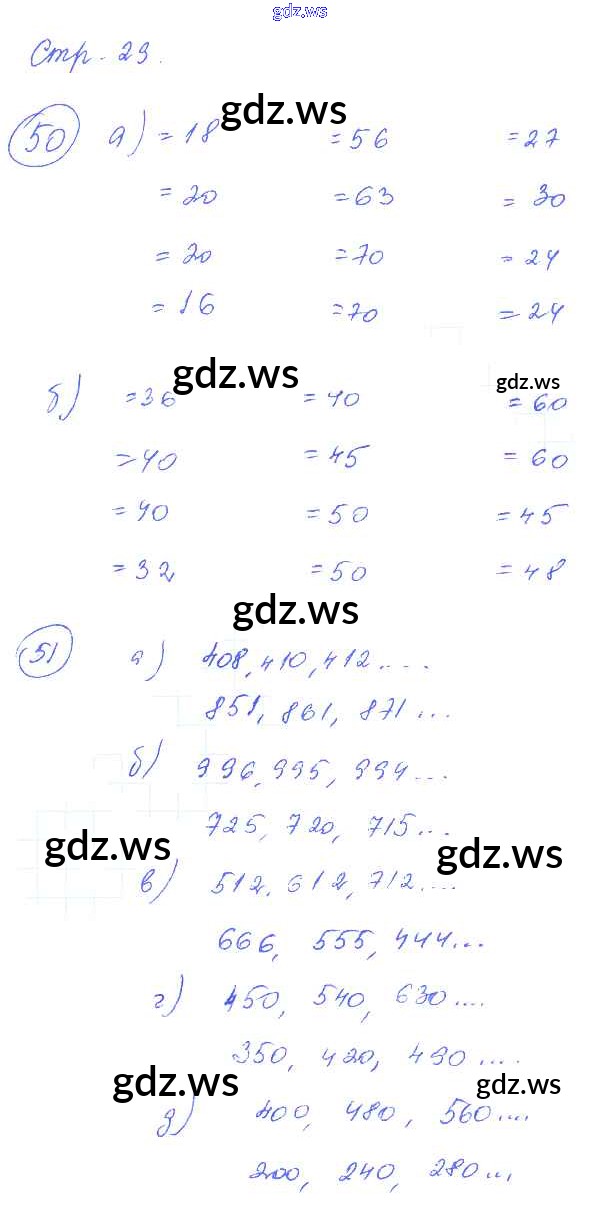 gdz.ws
Стр. 23.
gdz.ws
50 а) = 18 = 56 = 27
= 20 = 63 = 30
= 20 = 70 = 24
= 16 = 70 = 24
gdz.ws gdz.ws
б) = 36 = 40 = 60
= 40 = 45 = 60
= 40 = 50 = 45
= 32 = 50 = 48
gdz.ws
51 а) 408, 410, 412....
851, 861, 871...
б) 996, 995, 994...
725, 720, 715...
gdz.ws gdz.ws
в) 512, 612, 712....
666, 555, 444...
г) 450, 540, 630....
350, 420, 490.....
gdz.ws gdz.ws
д) 400, 480, 560....
200, 240, 280...